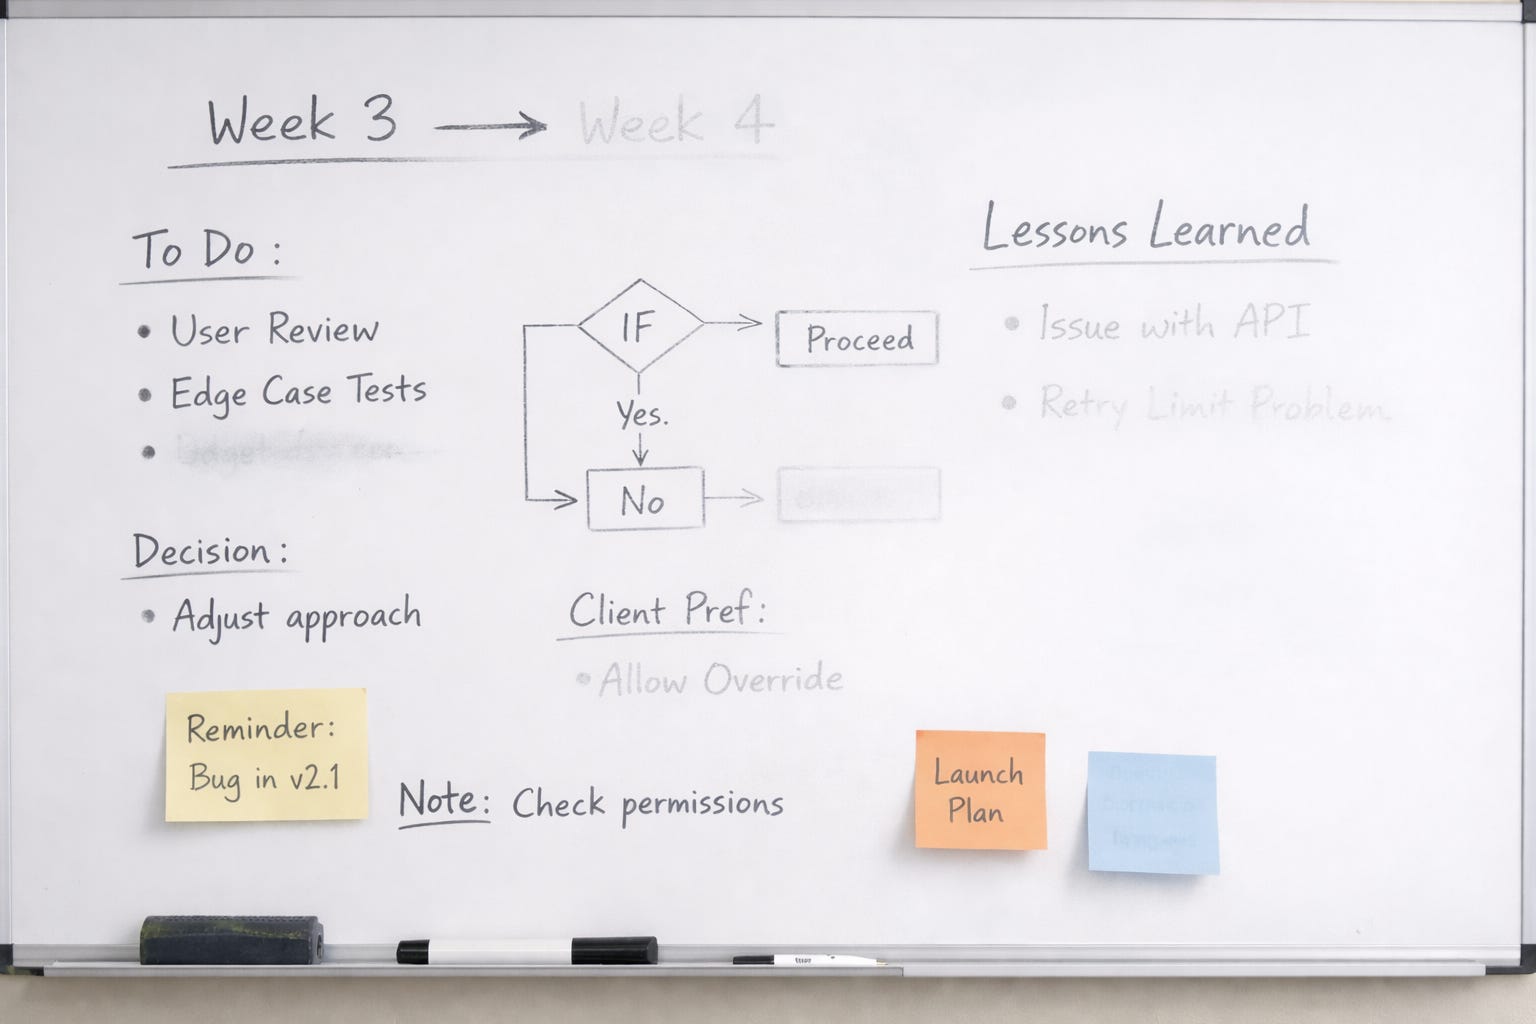 Week 3 → Week 4
To Do :
• User Review
• Edge Case Tests
•
IF
Proceed
Yes.
No
Lessons Learned
• Issue with API
• Retry Limit Problem
Decision :
• Adjust approach
Client Pref:
• Allow Override
Reminder:
Bug in v2.1
Note: Check permissions
Launch
Plan